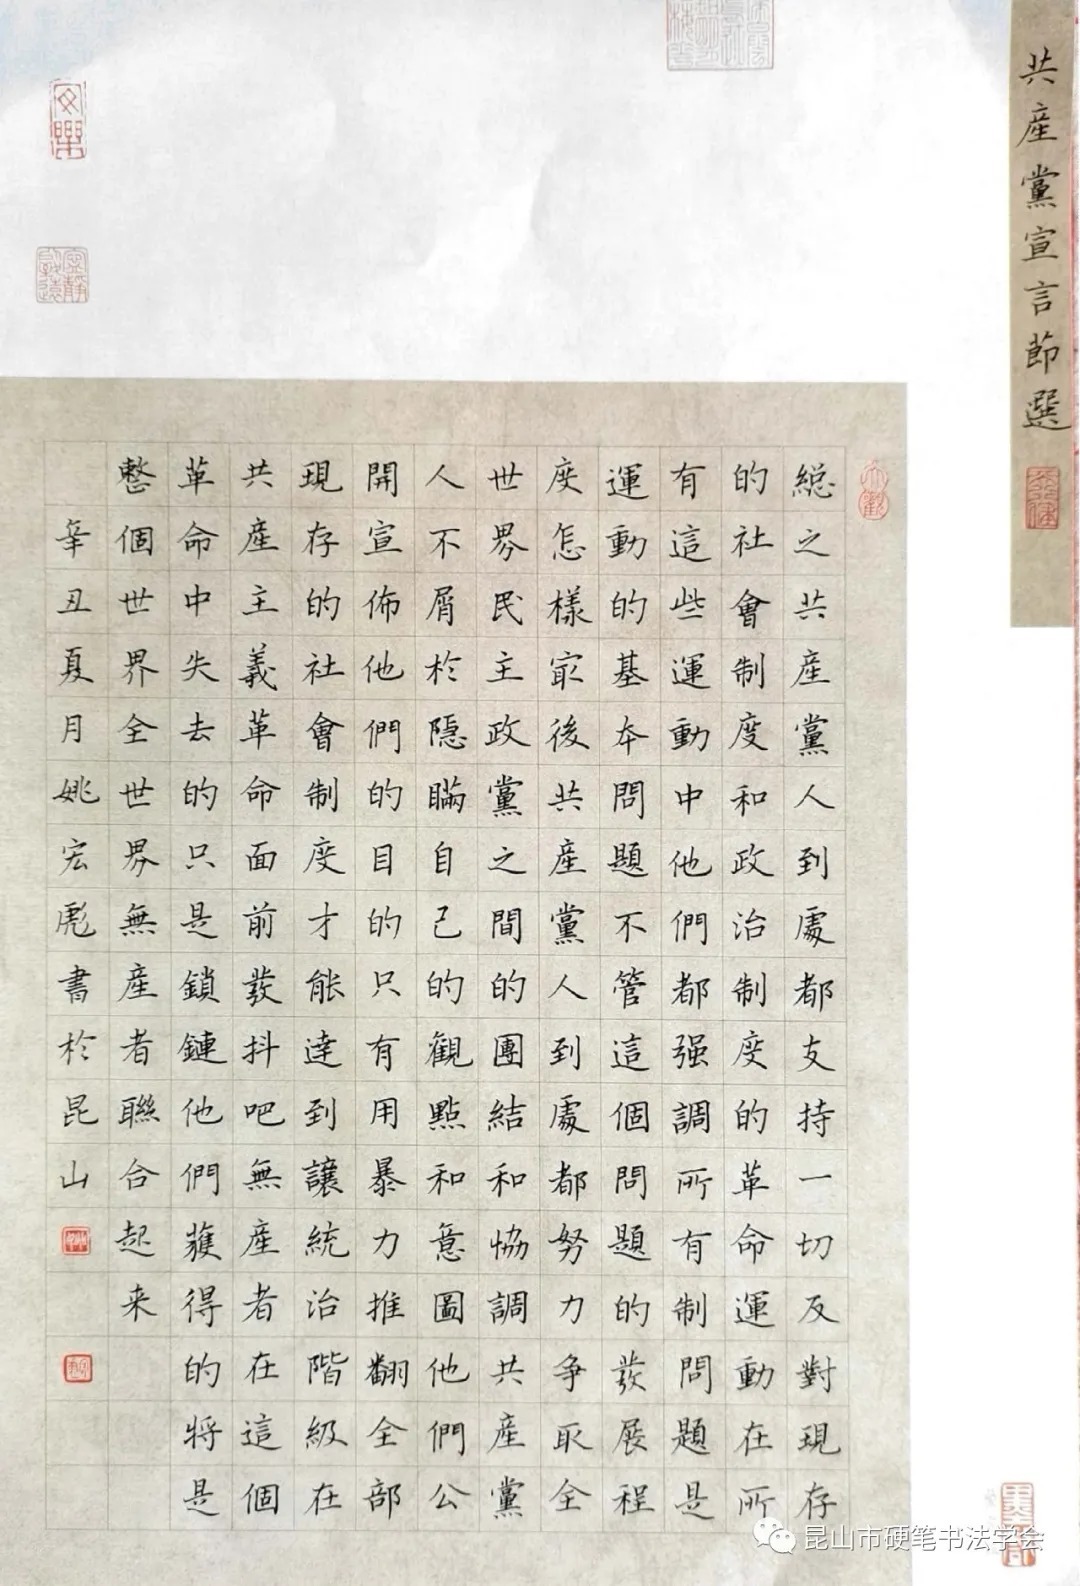 共產黨宣言節選
總之共產黨人到處都支持一切反對現存
的社會制度和政治制度的革命運動在所
有這些運動中他們都强調所有制問題是
運動的基本問題不管這個問題的發展程
度怎樣最後共產黨人到處都努力争取全
世界民主政黨之間的團結和協調共產黨
人不屑於隱瞞自己的觀點和意圖他們公
開宣佈他們的目的只有用暴力推翻全部
現存的社會制度才能達到讓統治階級在
共產主義革命面前發抖吧無產者在這個
革命中失去的只是鎖鏈他們獲得的將是
整個世界全世界無產者聯合起来
辛丑夏月姚宏彪書於昆山
昆山市硬笔书法学会